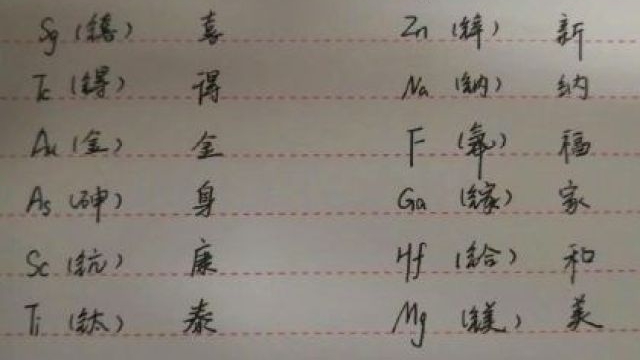 Sg (𬭳) 喜 Zn (锌) 新
Tc (锝) 得 Na (钠) 纳
Au (金) 全 F (氟) 福
As (砷) 身 Ga (镓) 家
Sc (钪) 康 Hf (铪) 和
Ti (钛) 泰 Mg (镁) 美